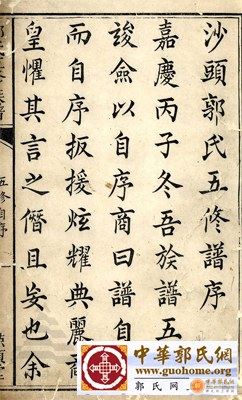 沙頭郭氏五修譜序
嘉慶丙子冬吾族譜五
竣僉以自序商曰譜自
而自序扳援炫耀典麗喬
皇懼其言之僭且妄也余
五修自序
中華郭氏网
www.guohome.org
郭氏网
中華郭氏网